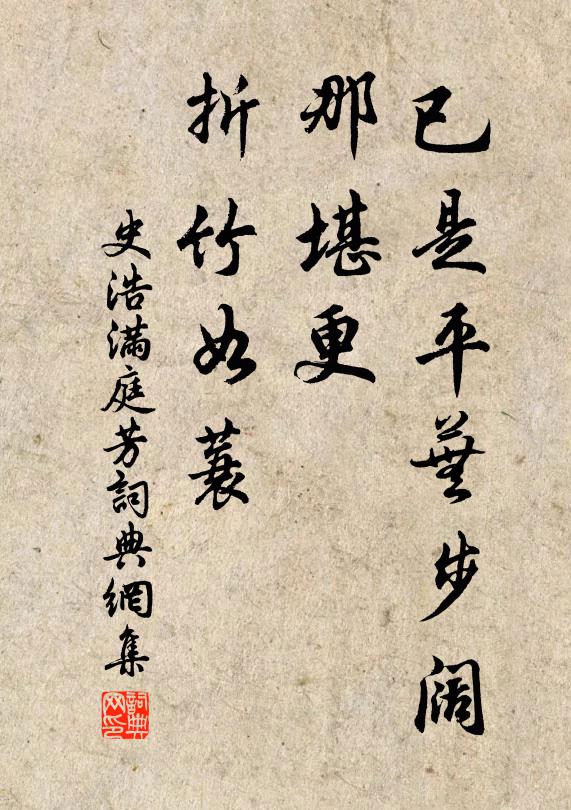 已是平蕪步闊
那堪更
折竹如蓑
史浩滿庭芳詞典網集
詞典網印